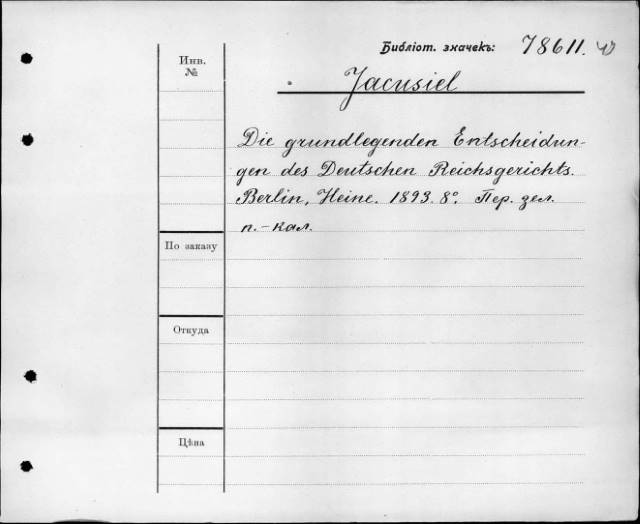 Библіот. значекъ: 78611.
Инв.
№
Jacusiel
Die grundlegenden Entscheidun-
gen des Deutschen Reichsgerichts.
Berlin, Heine. 1893. 8°. Пер. зел.
п.-кал.
По заказу
Откуда
Цѣна